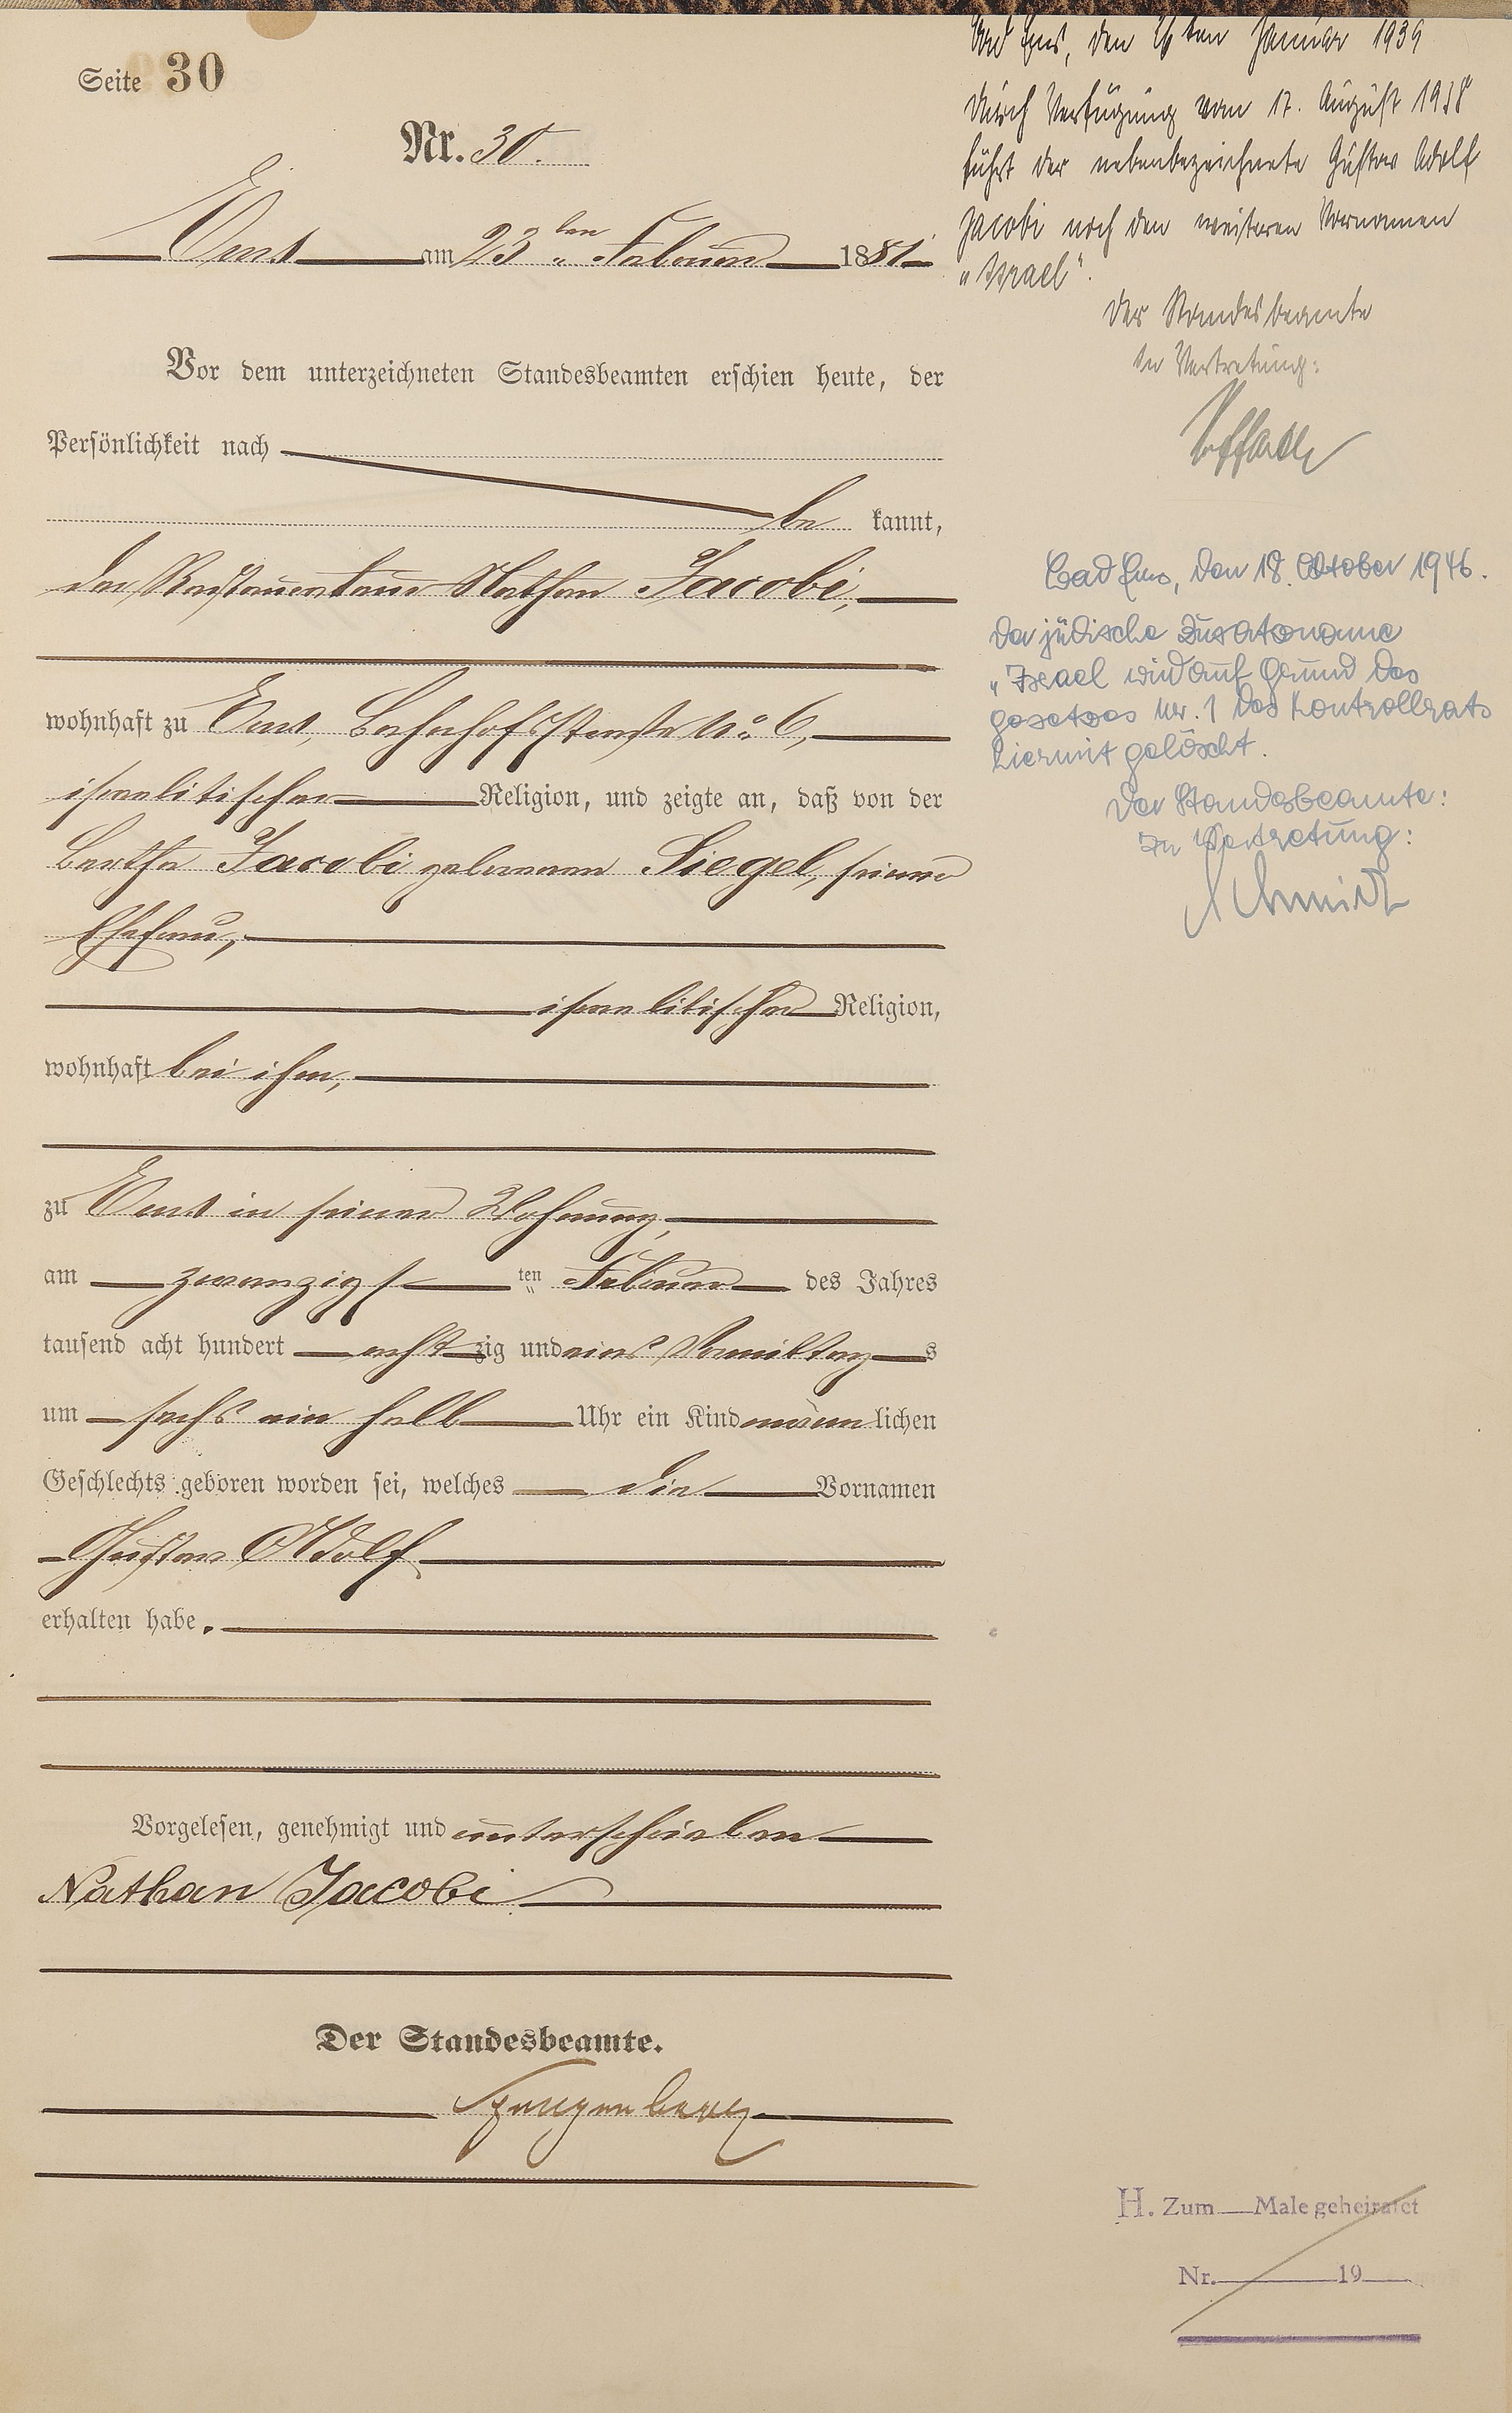 Seite 30
Nr. 30.
Ems am 23ten Februar 1881
Vor dem unterzeichneten Standesbeamten erschien heute, der
Persönlichkeit nach
be kannt,
der Restaurateur Nathan Jacobi,
wohnhaft zu Ems, Bahnhofsstraße No 6,
israelitischer Religion, und zeigte an, daß von der
Bertha Jacobi geborenen Siegel, seiner
Ehefrau,
israelitischer Religion,
wohnhaft bei ihm,
zu Ems in seiner Wohnung,
am zwanzigsten Februar des Jahres
tausend acht hundert achtzig und eins Vormittags
um sechs ein halb Uhr ein Kind männlichen
Geschlechts geboren worden sei, welches die Vornamen
Gustav Adolf
erhalten habe.
Vorgelesen, genehmigt und unterschrieben
Nathan Jacobi
Der Standesbeamte.
Spangenberg
Bad Ems, den ten Januar 1939
Durch Verfügung vom 17. August 1938
führt der nebenbezeichnete Gustav Adolf
Jacobi noch den weiteren Vornamen
"Israel".
Der Standesbeamte
In Vertretung:
Bad Ems, den 18. Oktober 1946.
Der jüdische Zusatzname
"Israel wird auf Grund des
Gesetzes Nr. 1 des Kontrollrats
hiermit gelöscht.
Der Standesbeamte:
In Vertretung:
Schmidt
H. Zum Male geheiratet
Nr. 19